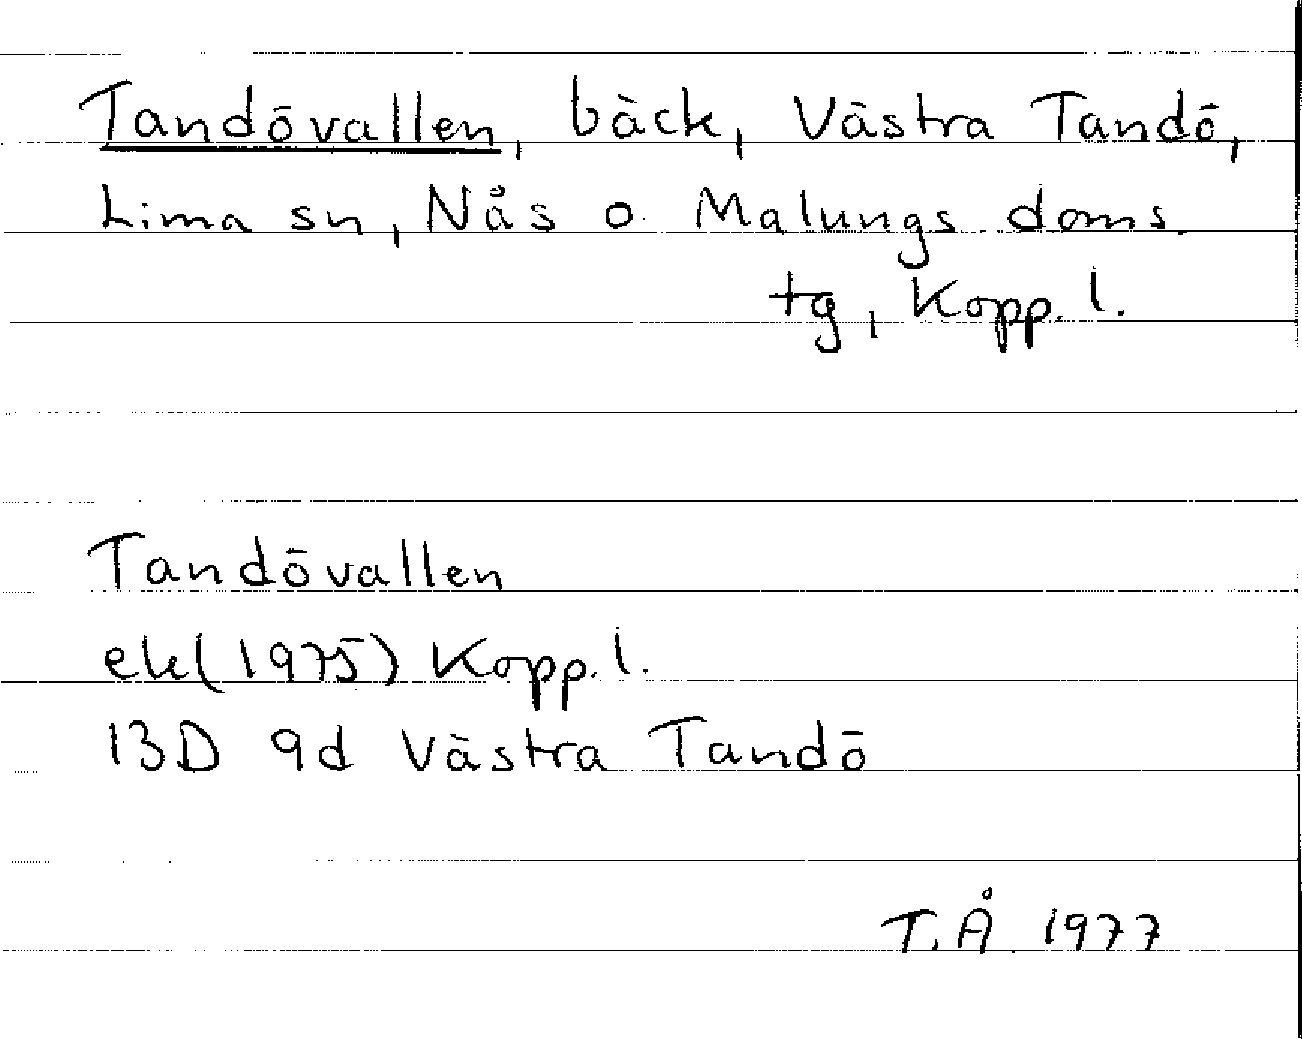 Tandövallen, bäck, Västra Tandö,
Lima sn, Nås o. Malungs doms.
tg, Kopp. l.
Tandövallen
ek(1975) Kopp. l.
13D 9d Västra Tandö
T.Å. 1977